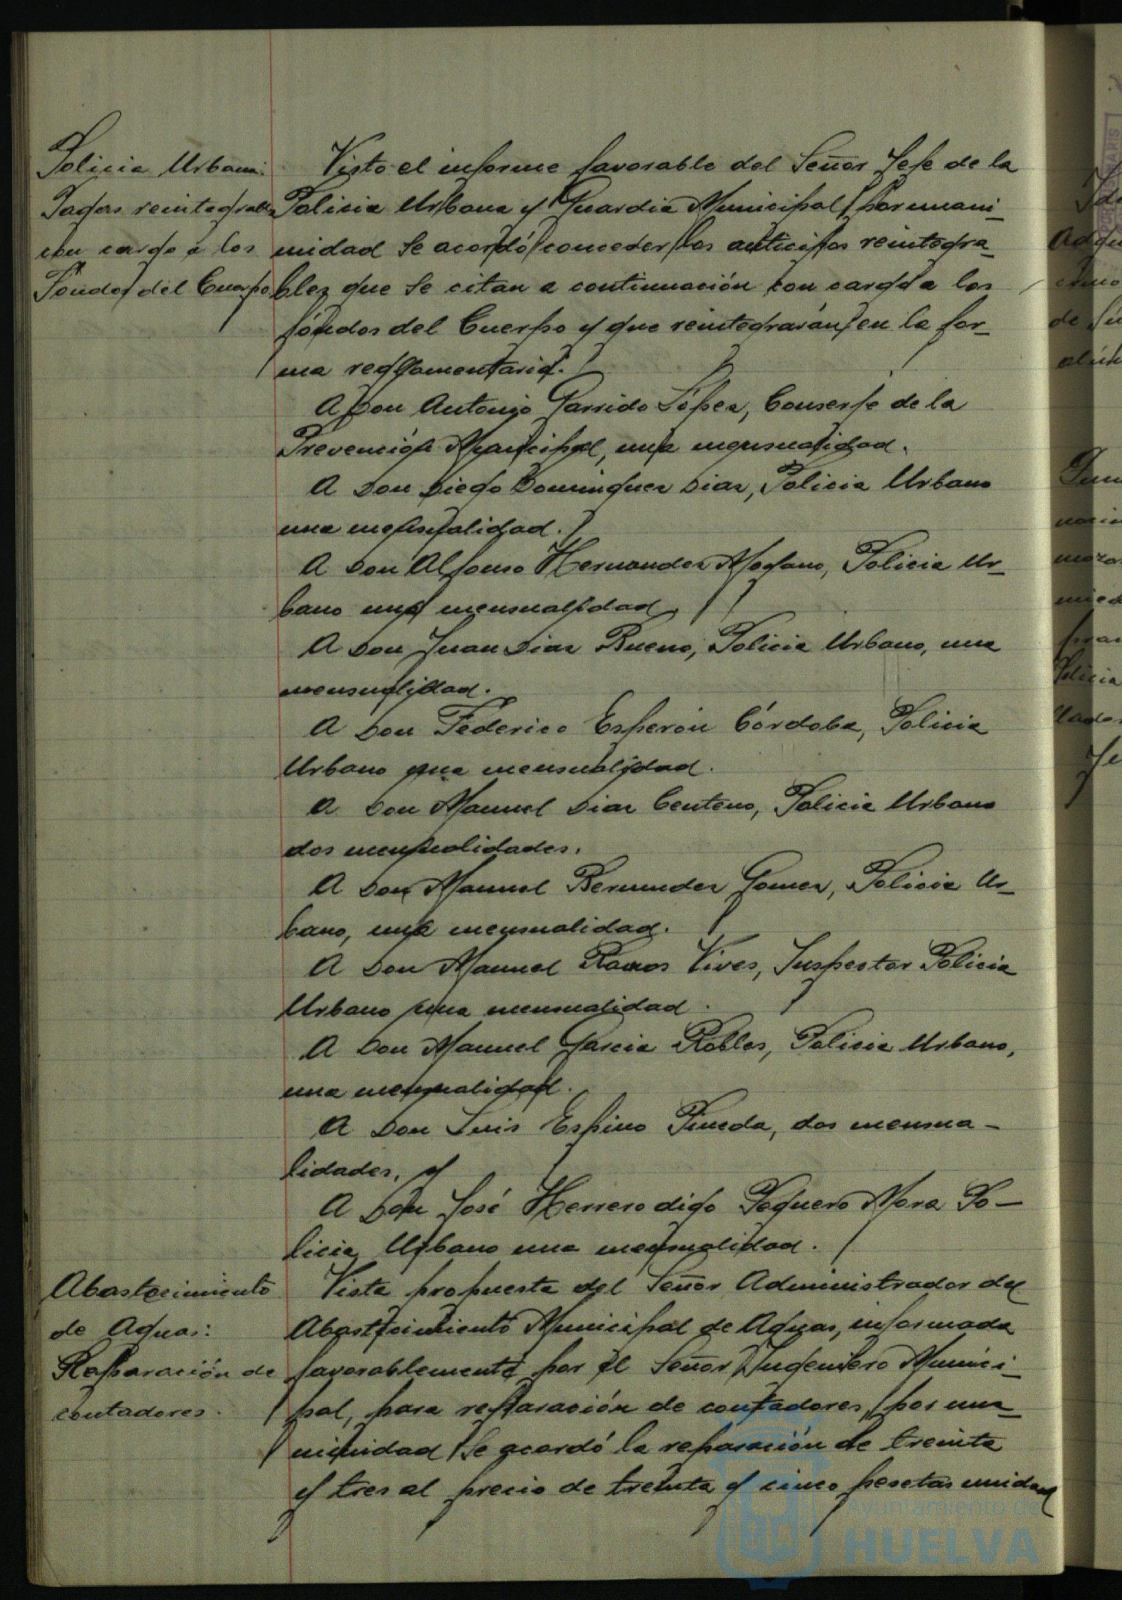 Policia Urbana:
Pagas reintegrables
con cargo a los
Fondos del Cuerpo
Visto el informe favorable del Señor Jefe de la
Policia Urbana y Guardia Municipal por unani-
midad se acordó conceder los anticipos reintegra-
bles que se citan a continuación con cargo a los
fondos del Cuerpo y que reintegrarán en la for-
ma reglamentaria.
A Don Antonio Garrido López, Conserje de la
Prevención Municipal, una mensualidad.
A Don Diego Dominguez Diaz, Policia Urbano
una mensualidad.
A Don Alfonso Hernandez Moyano, Policia Ur-
bano una mensualidad.
A Don Juan Diaz Bueno, Policia Urbano, una
mensualidad.
A Don Federico Esperón Córdoba, Policia
Urbano una mensualidad.
A Don Manuel Diaz Centeno, Policia Urbano
dos mensualidades.
A Don Manuel Bermudez Gomez, Policia Ur-
bano, una mensualidad.
A Don Manuel Ramos Vives, Inspector Policia
Urbano una mensualidad.
A Don Manuel Garcia Robles, Policia Urbano,
una mensualidad.
A Don Luis Espino Pineda, dos mensua-
lidades, y
A Don José Herrero digo Peguero Mora Po-
licia Urbano una mensualidad.
Abastecimiento
de Aguas:
Reparación de
contadores.
Vista propuesta del Señor Administrador del
Abastecimiento Municipal de Aguas, informada
favorablemente por el Señor Ingeniero Munici-
pal, para reparación de contadores, por una-
nimidad se acordó la reparación de treinta
y tres al precio de treinta y cinco pesetas unidad
Ayuntamiento de
HUELVA